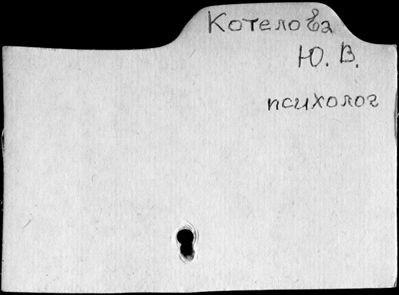 Котелова
Ю. В.
психолог